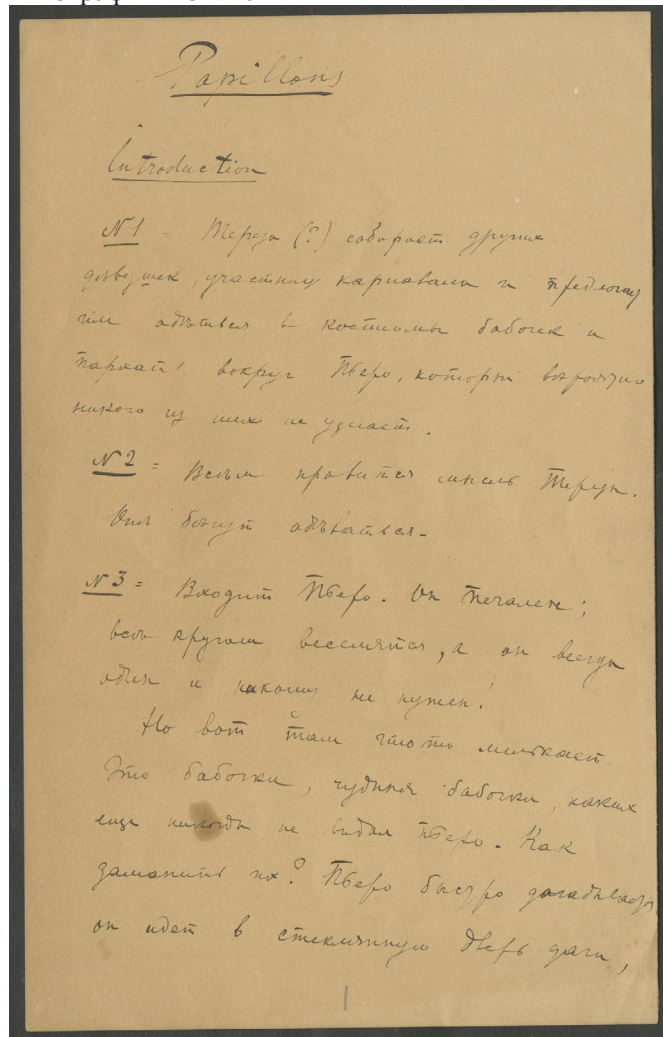 Papillons
Introduction
N1 - Тереза (?) собирает других
девушек, участниц карнавала и предлагает
им одѣться в костюмы бабочек и
порхать вокруг Пьеро, который
никого из них не узнает.
N2 = Всѣм нравится мысль Терезы.
Онѣ бегут одѣваться -
N3 = Входит Пьеро. Он печален;
всѣ кругом веселятся, а он всегда
один и никому не нужен!
Но вот там что то мелькает.
Это бабочки, чудныя бабочки, каких
еще никогда не видал Пьеро. Как
заманить их? Пьеро быстро догадывается,
он идет в стеклянную дверь дачи,
1